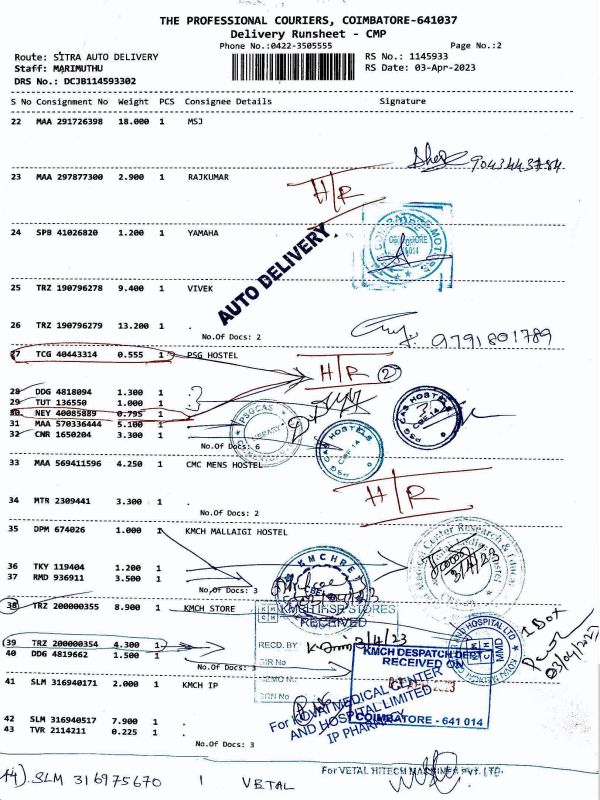 THE PROFESSIONAL COURIERS, COIMBATORE-641037
Delivery Runsheet - CMP
Phone No.:0422-3505555
Page No.:2
Route: SITRA AUTO DELIVERY
RS No.: 1145933
Staff: MARIMUTHU
RS Date: 03-Apr-2023
DRS No.: DCJB114593302
S No Consignment No Weight PCS Consignee Details Signature
22 MAA 291726398 18.000 1 MSJ
9043443784
23 MAA 297877300 2.900 1 RAJKUMAR
H/R
24 SPB 41026820 1.200 1 YAMAHA
AUTO DELIVERY
25 TRZ 190796278 9.400 1 VIVEK
26 TRZ 190796279 13.200 1 .
No.Of Docs: 2
9791801789
27 TCG 40443314 0.555 1 PSG HOSTEL
H/R 2
28 DDG 4818094 1.300 1 .
29 TUT 136550 1.000 1
30 NEY 40085889 0.795 1
31 MAA 570336444 5.100 1
32 CNR 1650204 3.300 1 .
No.Of Docs: 6
PSGCAS
LIBRARY
PSG CAS HOSTELS
CBE-14
PSG CAS HOSTELS
CBE-14
33 MAA 569411596 4.250 1 CMC MENS HOSTEL
H/R
34 MTR 2309441 3.300 1 .
No.Of Docs: 2
35 DPM 674026 1.000 1 KMCH MALLAIGI HOSTEL
36 TKY 119404 1.200 1 .
37 RMD 936911 3.500 1 .
No.Of Docs: 3
3/4/23
38 TRZ 200000355 8.900 1 KMCH STORE
STORES
RECEIVED
RECD. BY
3/4/23
GIR No
MEMO No
GRN No
39 TRZ 200000354 4.300 1 .
40 DDG 4819662 1.500 1 .
No.Of Docs: 3
KMCH DESPATCH DEPT
RECEIVED ON
2023
COIMBATORE - 641 014
HOSPITAL LTD
MMD
1 Box
03/04/2023
41 SLM 316940171 2.000 1 KMCH IP
For KOVAI MEDICAL CENTER
AND HOSPITAL LIMITED
IP PHARMACY
42 SLM 316940517 7.900 1 .
43 TVR 2114211 0.225 1 .
No.Of Docs: 3
For VETAL HITECH MACHINES PVT. LTD.
44) SLM 316975670 1 VETAL